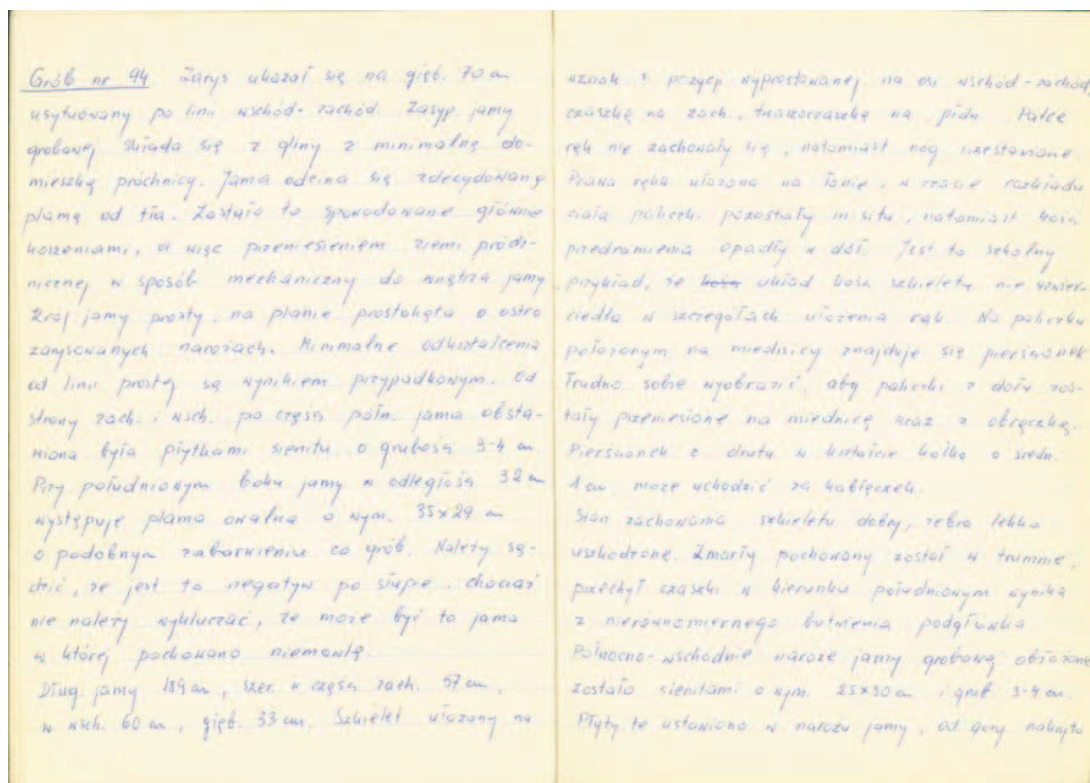 Grób nr 94 Zarys ukazał się na głęb. 70 cm
usytuowany po linii wschód-zachód. Zasyp jamy
grobowej składa się z gliny z minimalną do-
mieszką próchnicy. Jama odcina się zdecydowaną
plamą od tła. Zostało to spowodowane głównie
korzeniami, a więc przeniesieniem ziemi próch-
nicznej w sposób mechaniczny do wnętrza jamy.
Krój jamy prosty, na planie prostokąta o ostro
zarysowanych narożach. Minimalne odkształcenia
od linii prostej są wynikiem przypadkowym. Od
strony zach. i wsch. po części półn. jama obsta-
wiona była płytkami sienitu o grubości 3-4 cm.
Przy południowym boku jamy w odległości 32 cm
występuje plama owalna o wym. 35x29 cm
o podobnym zabarwieniu co grób. Należy są-
dzić, że jest to negatyw po słupie, chociaż
nie należy wykluczać, że może być to jama
w której pochowano niemowlę.
Dług. jamy 189 cm, szer. w części zach. 57 cm,
w wsch. 60 cm, głęb. 33 cm. Szkielet ułożony na
wznak w pozycji wyprostowanej na osi wschód-zachód,
czaszką na zach., twarzoczaszką na płdn. Palce
rąk nie zachowały się, natomiast nóg
Prawa ręka ułożona na łonie, w czasie rozkładu
ciała paliczki pozostały in situ, natomiast kości
przedramienia opadły w dół. Jest to szkolny
przykład, że układ kości szkieletu nie zwier-
ciedla w szczegółach ułożenia rąk. Na paliczku
położonym na miednicy znajduje się pierścionek
Trudno sobie wyobrazić, aby paliczki z dołu zos-
tały przeniesione na miednicę wraz z obrączką.
Pierścionek z drutu w kształcie kółka o średn.
1 cm może uchodzić za kabłączek.
Stan zachowania szkieletu dobry, żebra lekko
uszkodzone. Zmarły pochowany został w trumnie,
przechył czaszki w kierunku południowym wynika
z nierównomiernego butwienia podgłówka
Północno-wschodnie naroże jamy grobowej obłożone
zostało sienitami o wym. 25x30 cm i grub. 3-4 cm.
Płyty te ustawiono w narożu jamy, od góry nakryto